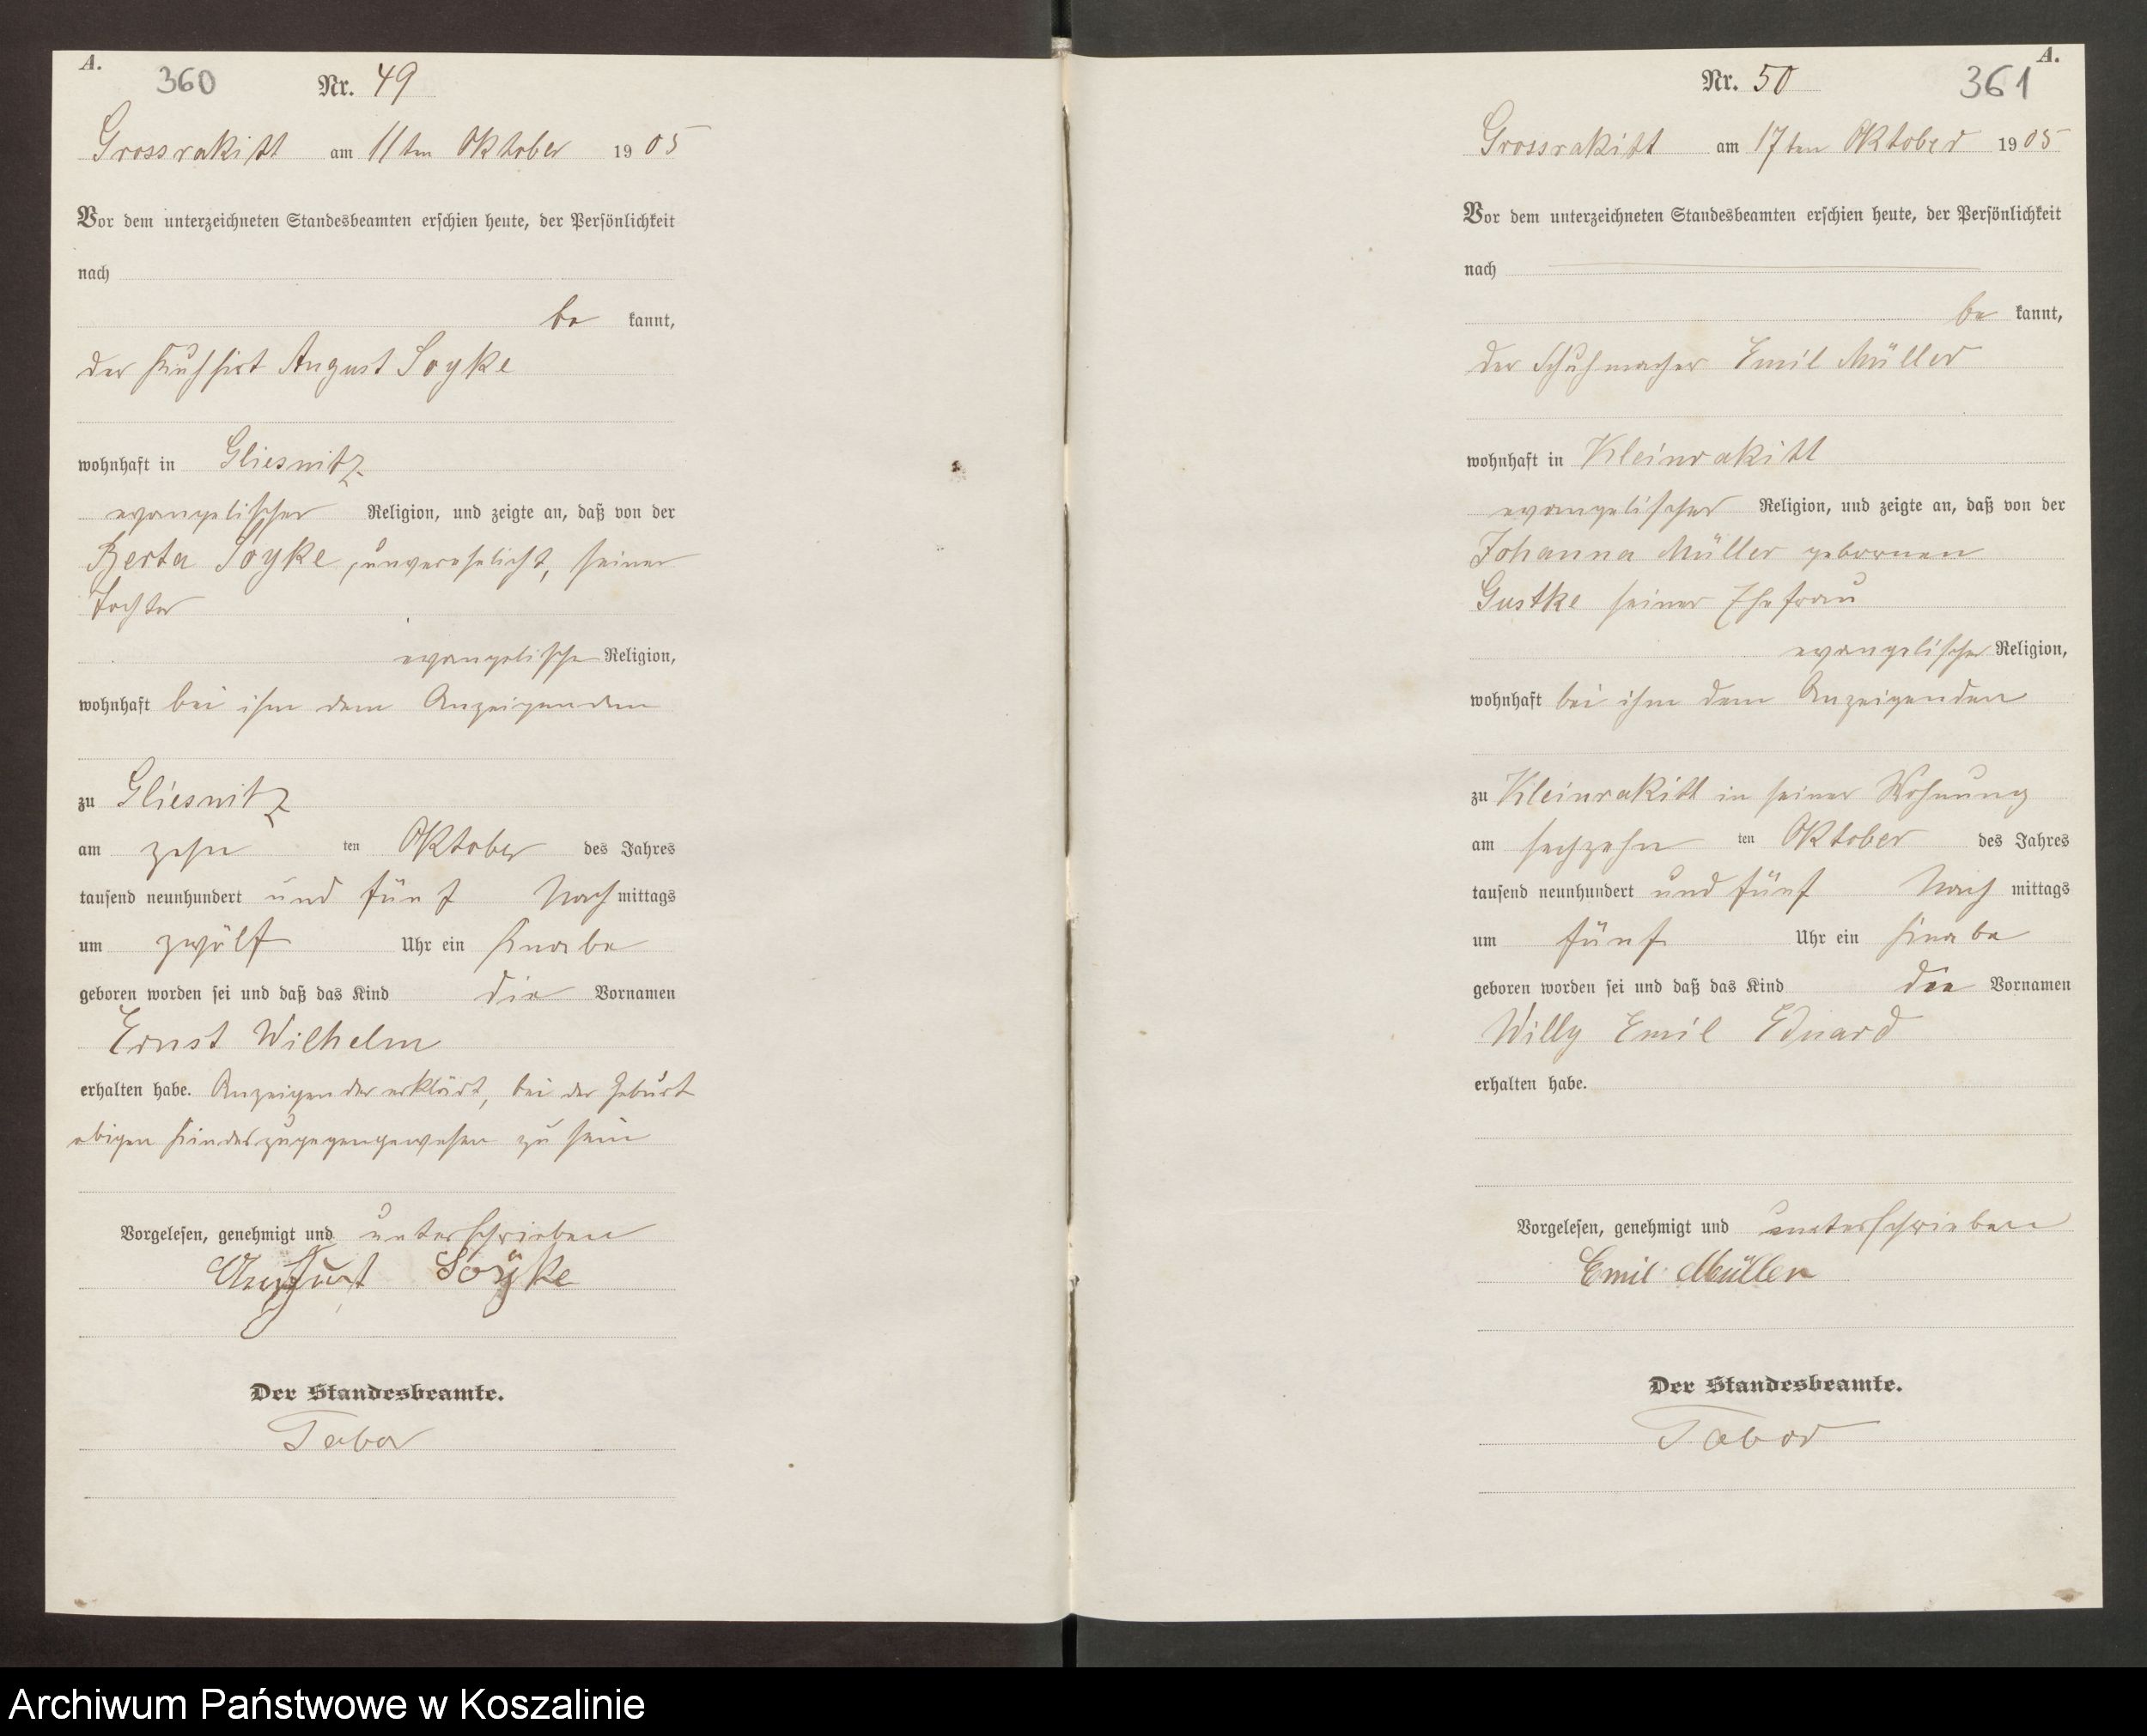 A.
360
Nr. 49
Grossrakitt am 11ten Oktober 1905
Vor dem unterzeichneten Standesbeamten erschien heute, der Persönlichkeit
nach
be kannt,
der Kuhhirt August Soyke
wohnhaft in Gliesnitz
evangelischer Religion, und zeigte an, daß von der
Berta Soyke, unverehelicht, seiner
Tochter
evangelische Religion,
wohnhaft bei ihm dem Anzeigenden
zu Gliesnitz
am zehn ten Oktober des Jahres
tausend neunhundert und fünf Nach mittags
um zwölf Uhr ein Knabe
geboren worden sei und daß das Kind die Vornamen
Ernst Wilhelm
erhalten habe. Anzeigender erklärt, bei der Geburt
obigen Kindes zugegengewesen zu sein
Vorgelesen, genehmigt und unterschrieben
August Soÿke
Der Standesbeamte.
Tabor
A.
Nr. 50
361
Grossrakitt am 17ten Oktober 1905
Vor dem unterzeichneten Standesbeamten erschien heute, der Persönlichkeit
nach
be kannt,
der Schuhmacher Emil Müller
wohnhaft in Kleinrakitt
evangelischer Religion, und zeigte an, daß von der
Johanna Müller gebornen
Gustke seiner Ehefrau
evangelischer Religion,
wohnhaft bei ihm dem Anzeigenden
zu Kleinrakitt in seiner Wohnung
am sechzehn ten Oktober des Jahres
tausend neunhundert und fünf Nach mittags
um fünf Uhr ein Knabe
geboren worden sei und daß das Kind die Vornamen
Willy Emil Eduard
erhalten habe.
Vorgelesen, genehmigt und unterschrieben
Emil Müller
Der Standesbeamte.
Tabor
Archiwum Państwowe w Koszalinie